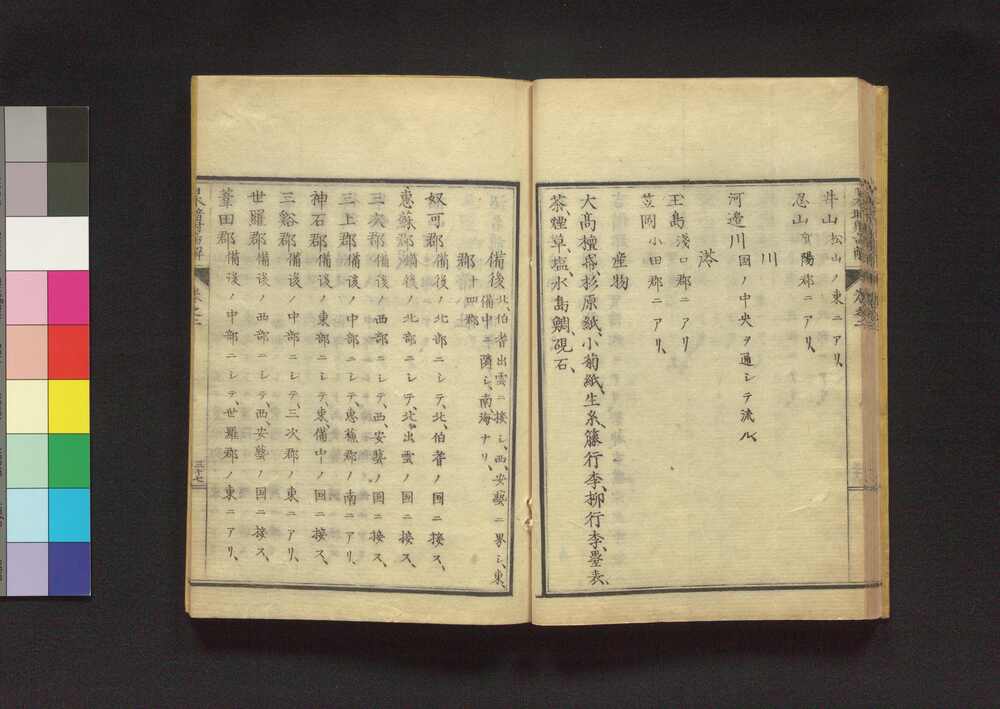 井山松山ノ東ニアリ、
忍山賀陽郡ニアリ、
川
河邉川国ノ中央ヲ通シテ流ル、
港
玉島浅口郡ニアリ
笠岡小田郡ニアリ、
産物
大髙檀帋、杉原紙、小菊紙、生糸、籐行李、柳行李、疊表、
茶、煙草、塩、水島鯛、硯石、
備後北、伯耆出雲ニ接シ、西、安藝ニ界シ、東、
備中ニ隣シ、南、海ナリ、
郡十四郡
奴可郡備後ノ北部ニシテ、北、伯耆ノ国ニ接ス、
惠蘇郡備後ノ北部ニシテ、北、出雲ノ国ニ接ス、
三次郡備後ノ北部ニシテ、西、安藝ノ国ニ接ス、
三上郡備後ノ中部ニシテ、惠蘓郡ノ南ニアリ、
神石郡備後ノ東部ニシテ、東、備中ノ国ニ接ス、
三谿郡備後ノ中部ニシテ、三次郡ノ東ニアリ、
世羅郡備後ノ中部ニシテ、西、安藝ノ国ニ接ス、
葦田郡備後ノ中部ニシテ、世羅郡ノ東ニアリ、
三十七